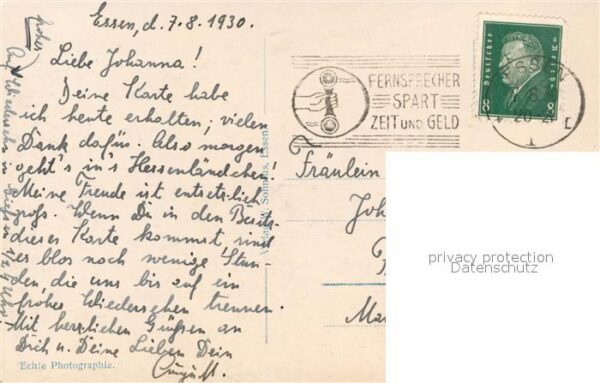 Essen, d. 7.8.1930.
Liebe Johanna!
Deine Karte habe
ich heute erhalten, vielen
Dank dafür. Also morgen
geht's in's Hessenländchen!
Meine Freude ist entsetzlich
groß. Wenn Du in den Besitz
dieses Karte kommst, sind
es blos noch wenige Stun-
den, die uns bis auf ein
frohes Wiedersehen trennen.
Mit herzlichen Grüßen an
Dich u. Deine Lieben Dein
August.
Auf Wiedersehn in
Uhr
Echte Photographie.
Essen
FERNSPRECHER
SPART
ZEIT UND GELD
Deutsches Reich
8 8
ESSEN
L
1
Fräulein
Joh
Ma
privacy protection
Datenschutz